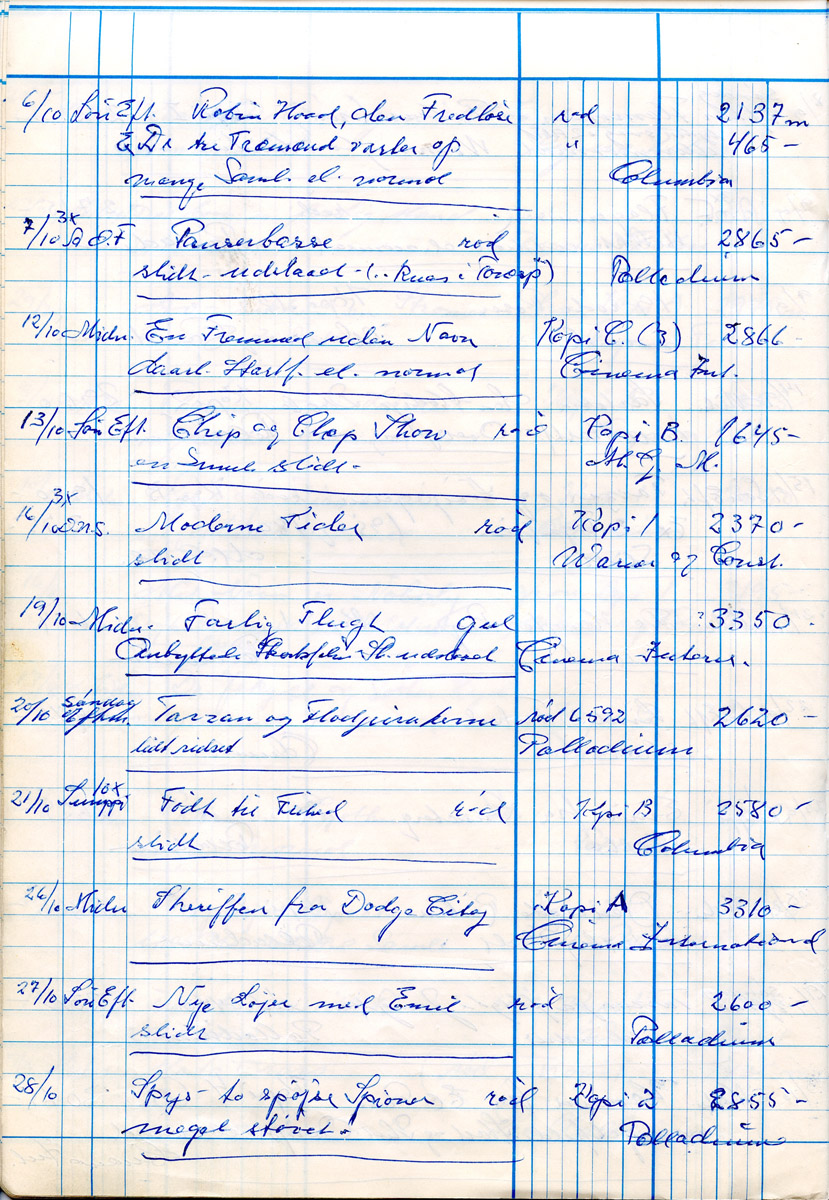 6/10 Søn Eft. Robin Hood, den Fredløse rød 2137 m
& De tre Træmænd vasker op " 465 –
mange Saml. el. normal Columbia
7/10 3x Panserbasse rød 2865 –
slidt – udslaad – (.. Knas i Torsp) Palladium
12/10 Midn. En Fremmed uden Navn Kopi C. (3) 2866
daarl. Startf. el. normal Cinema Int.
13/10 Søn Eft. Chip og Chap Show rød Kopi B. 1645 –
en Smule slidt – M. G. M.
16/10 3x Ons. Moderne Tider rød Kopi 1 2370 –
slidt Warner og Const.
19/10 Midn. Farlig Flugt gul ? 3350 –
Cinema Intern.
20/10 Søndag Eftm. Tarzan og Flodpiraterne rød 6592 2620 –
lidt ridset Palladium
21/10 10x Født til Frihed rød Kopi B 2580 –
slidt Columbia
26/10 Midn Sheriffen fra Dodge City Kopi A 3310 –
Cinema International
27/10 Søn Eft. Nye Løjer med Emil rød 2600 –
slidt Palladium
28/10 Spys – to spøjse Spioner rød Kopi 2 2855 –
meget støvet – Palladium